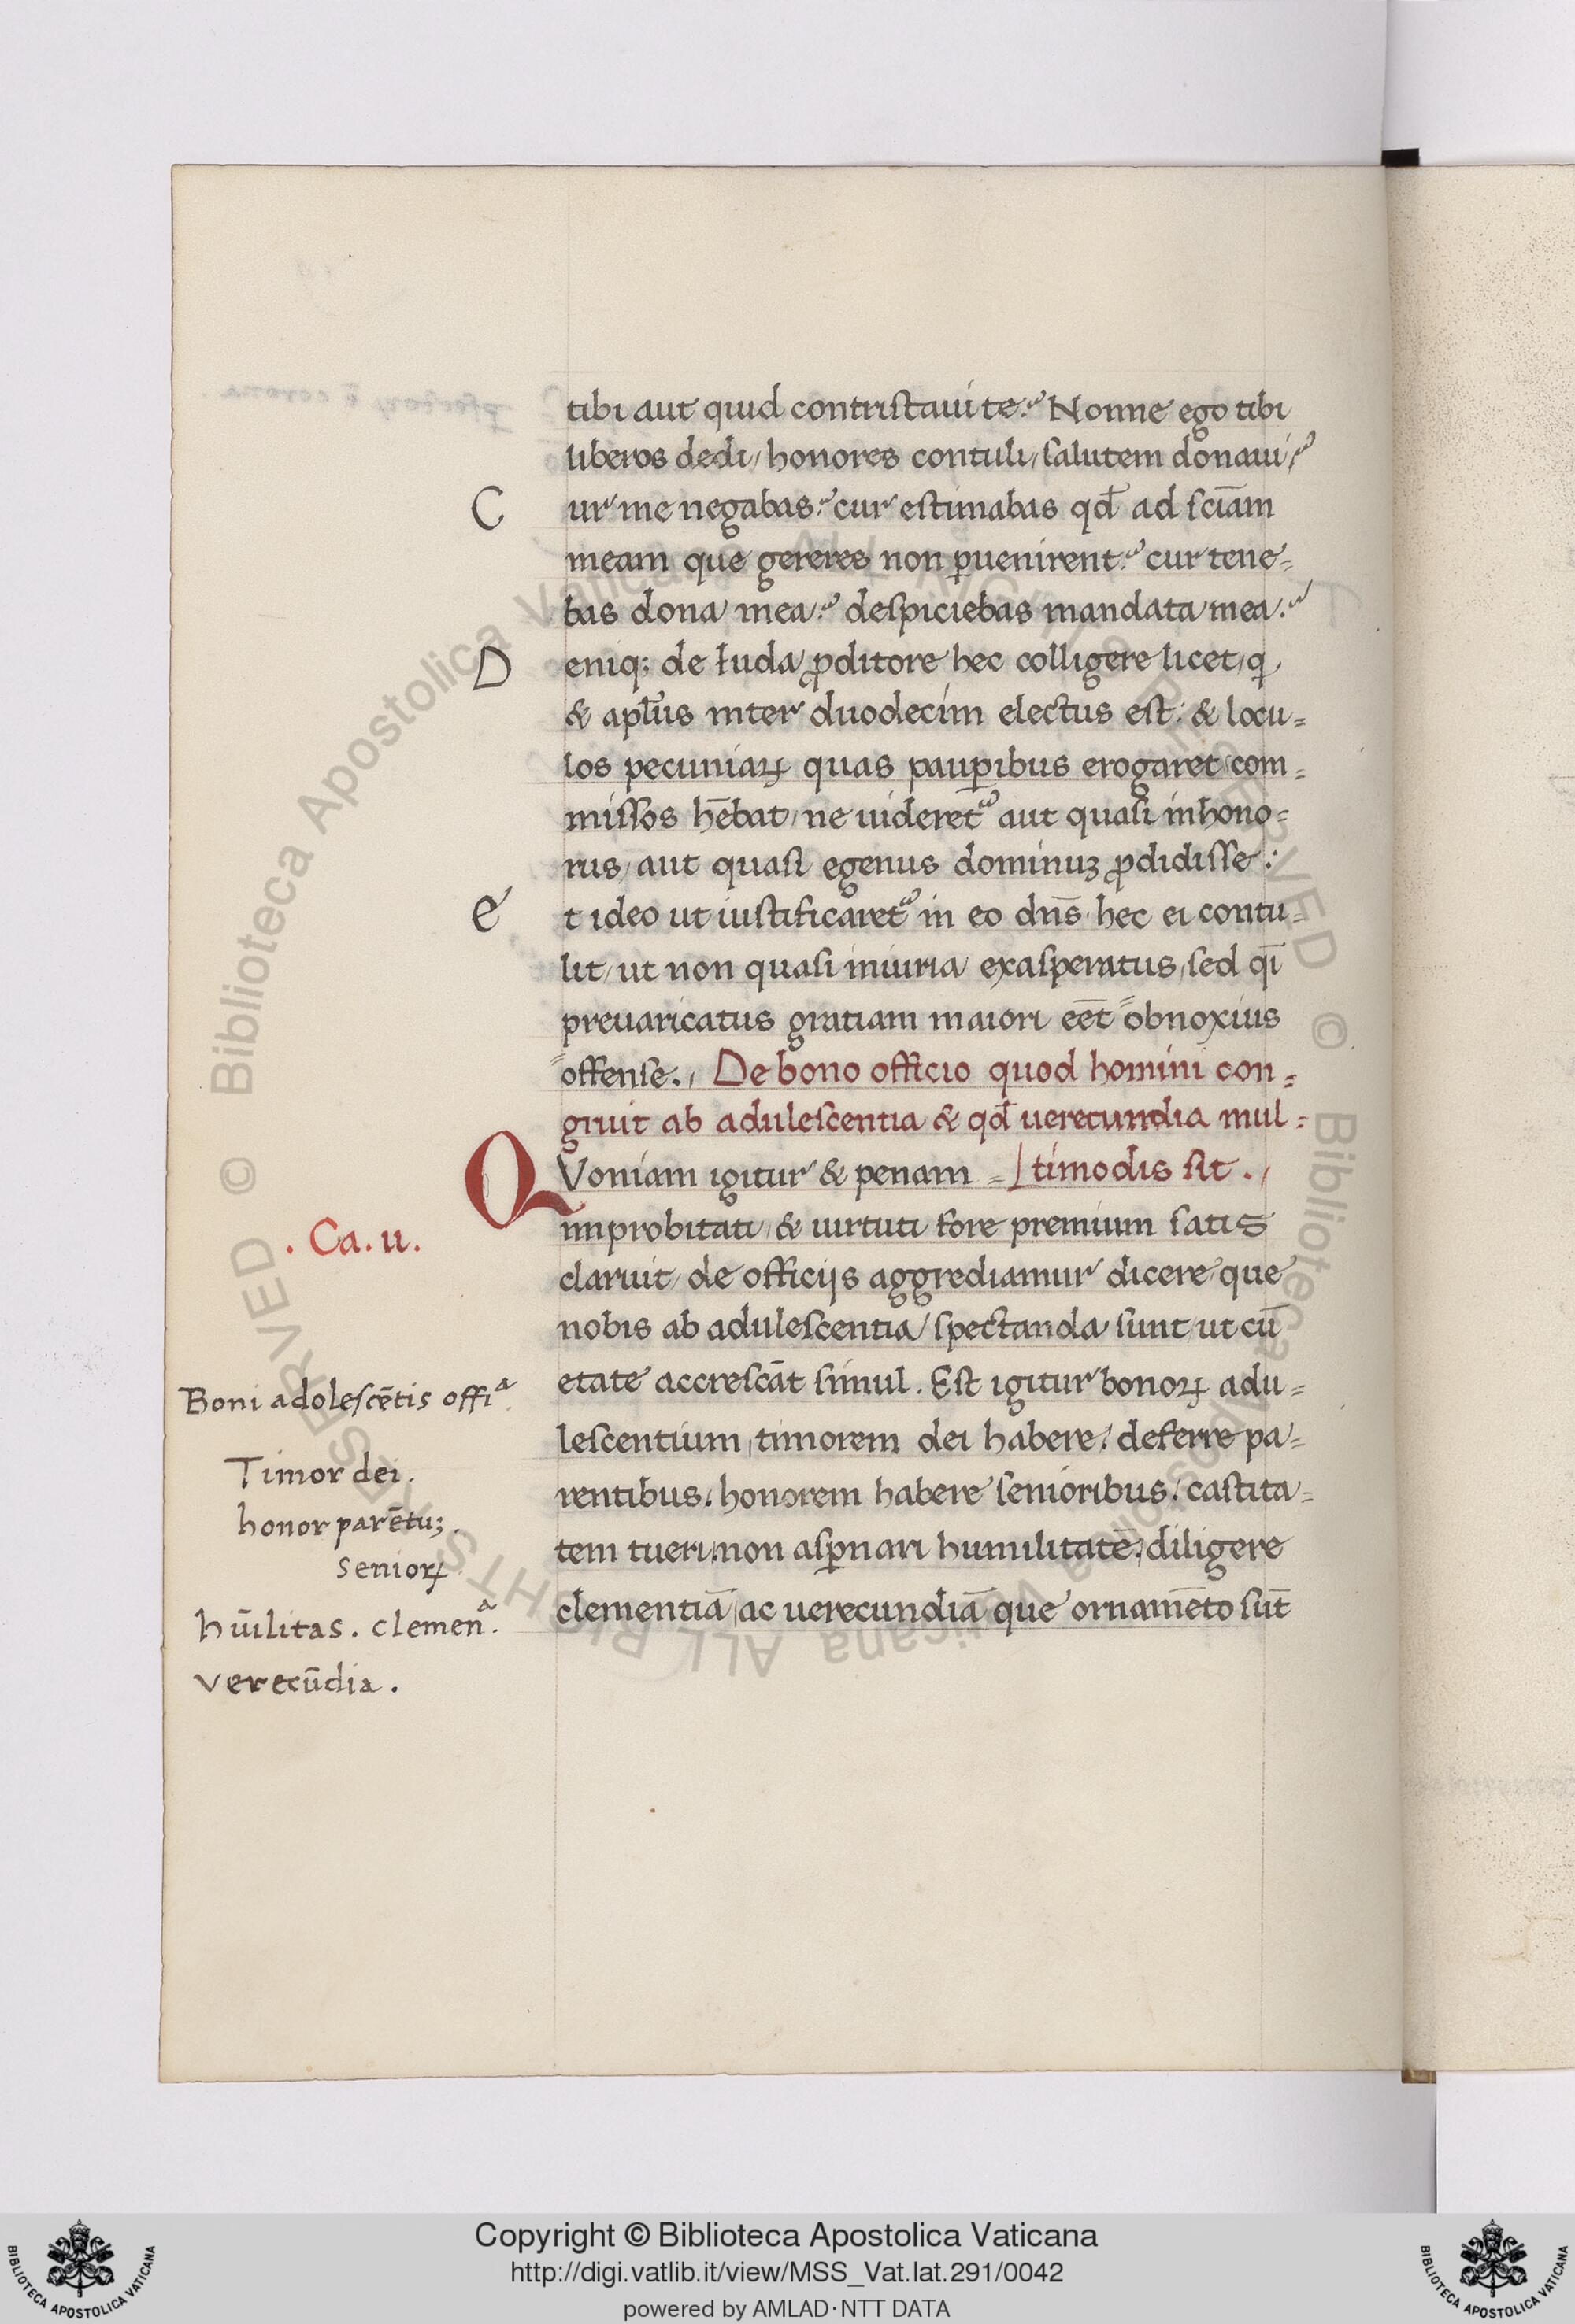 tibi aut quid contristaui te? Nonne ego tibi
liberos dedi, honores contuli, salutem donaui?
Cur me negabas? cur estimabas qđ ad sciam̄
meam que gereres non ꝑuenirent? cur tene=
bas dona mea? despiciebas mandata mea?
Deniq; de Iuda ꝓditore hec colligere licet, q
& apl̄us inter duodecim electus est: & locu=
los pecuniaꝝ quas pauꝑibus erogaret com=
missos hēbat, ne uideret᷑ aut quasi inhono=
rus, aut quasi egenus dominuꝫ ꝓdidisse:
et ideo ut iustificaret᷑ in eo dn̄s hec ei contu=
lit, ut non quasi iniuria exasperatus, sed qī
preuaricatus gratiam maiori eēt obnoxius
offense. De bono officio quod homini con=
gruit ab adulescentia & qđ uerecundia mul=
QVoniam igitur & penam = timodis sit.
improbitati, & uirtuti fore premium satis
claruit, de officijs aggrediamur dicere, que
nobis ab adulescentia, spectanda sunt, ut cū
etate accrescāt simul. Est igitur bonoꝝ adu=
lescentium, timorem dei habere: deferre pa=
rentibus: honorem habere senioribus: castita=
tem tueri: non asꝑnari humilitatē: diligere
clementiā, ac uerecundiā que ornamēto sūt
. Ca. u.
Boni adolescētis offiª.
Timor dei.
honor parētuꝫ.
senioꝝ
hūilitas. clemenª.
verecūdia.
Copyright © Biblioteca Apostolica Vaticana
http://digi.vatlib.it/view/MSS_Vat.lat.291/0042
powered by AMLAD·NTT DATA
BIBLIOTECA APOSTOLICA VATICANA
BIBLIOTECA APOSTOLICA VATICANA
© Biblioteca Apostolica Vaticana ALL RIGHTS RESERVED © Biblioteca Apostolica Vaticana ALL RIGHTS RESERVED